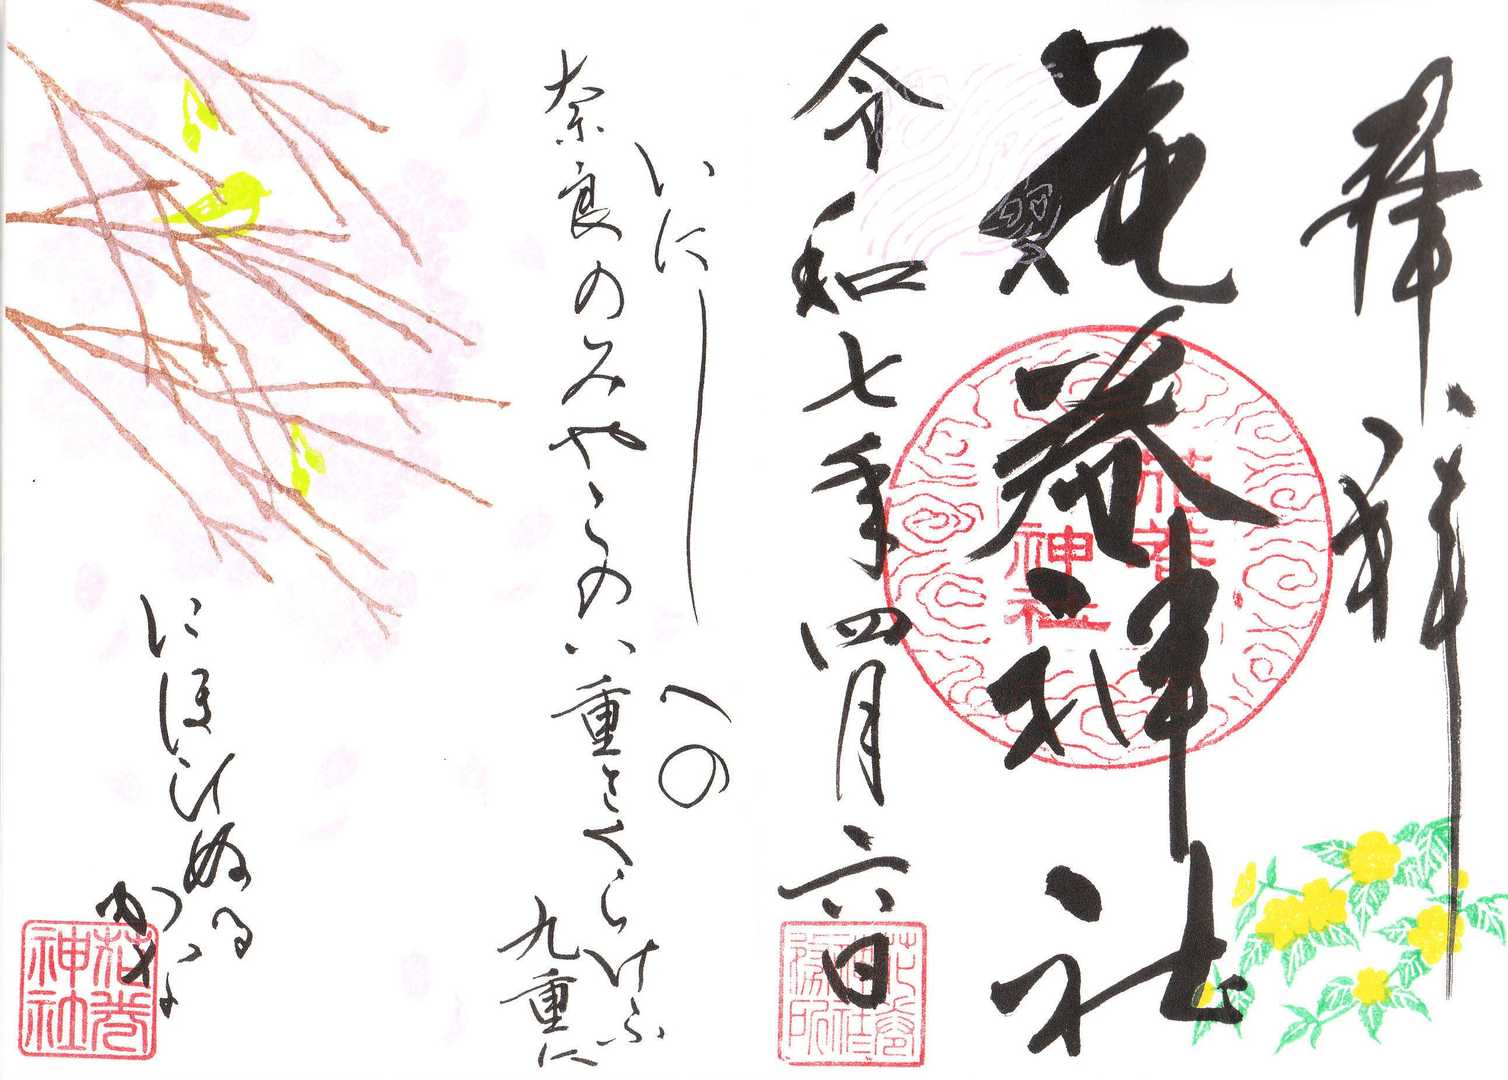 奉拝
花巻神社
花巻
神社
令和七年四月六日
花巻
神社
務所
いにしへの
奈良のみやこの八重さくらけふ
九重に
にほひぬる
かな
花巻
神社